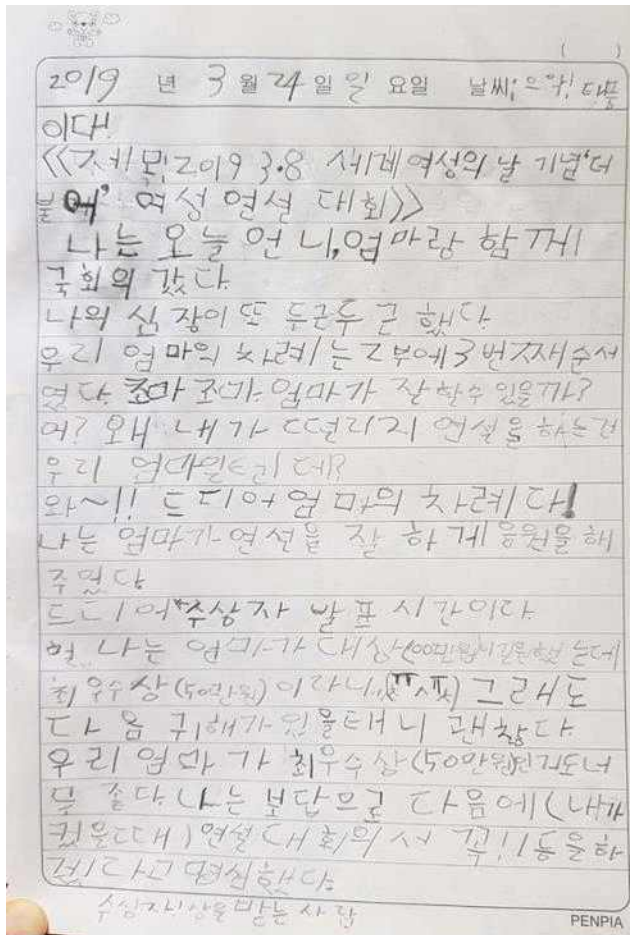 ( )
2019 년 3 월 24 일 일 요일 날씨: 으악! 태풍
이다!
<<제목: 2019 3.8 세계 여성의 날 기념 '더
불어' 여성 연설 대회>>
나는 오늘 언니, 엄마랑 함께
국회의 갔다.
나의 심장이 또 두근두근 했다.
우리 엄마의 차례는 2부에 3번째 순서
였다. 조마조마. 엄마가 잘 할수 있을까?
어? 왜 내가 떨리지 연설을 하는건
우리 엄마일 텐데?
와~!! 드디어 엄마의 차례다!
나는 엄마가 연설을 잘 하게 응원을 해
주었다
드디어 수상자 발표 시간이다.
나는 엄마가 대상(100만원)
최우수상(50만원)이라니.(ㅠ^ㅠ) 그래도
다음 기회가 있을태니 괜찮다
우리 엄마가 최우수상(50만원)
무 좋다. 나는 보답으로 다음에 (내가
컸을 때) 연설 대회의 서 꼭!! 1등을 하
겠다고 결심했다.
수상자: 상을 받는 사람
PENPIA